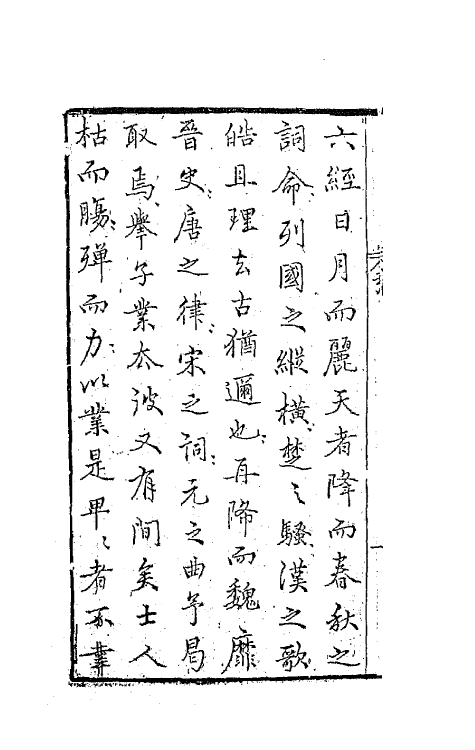 六經日月而麗天者降而春秋之
詞命列國之縱橫楚之騷漢之歌
皓且理去古猶邇也再降而魏靡
晉史唐之律宋之詞元之曲予曷
取焉舉子業太波又有間矣士人
枯而腸殫而力以業是畢〻者不辈